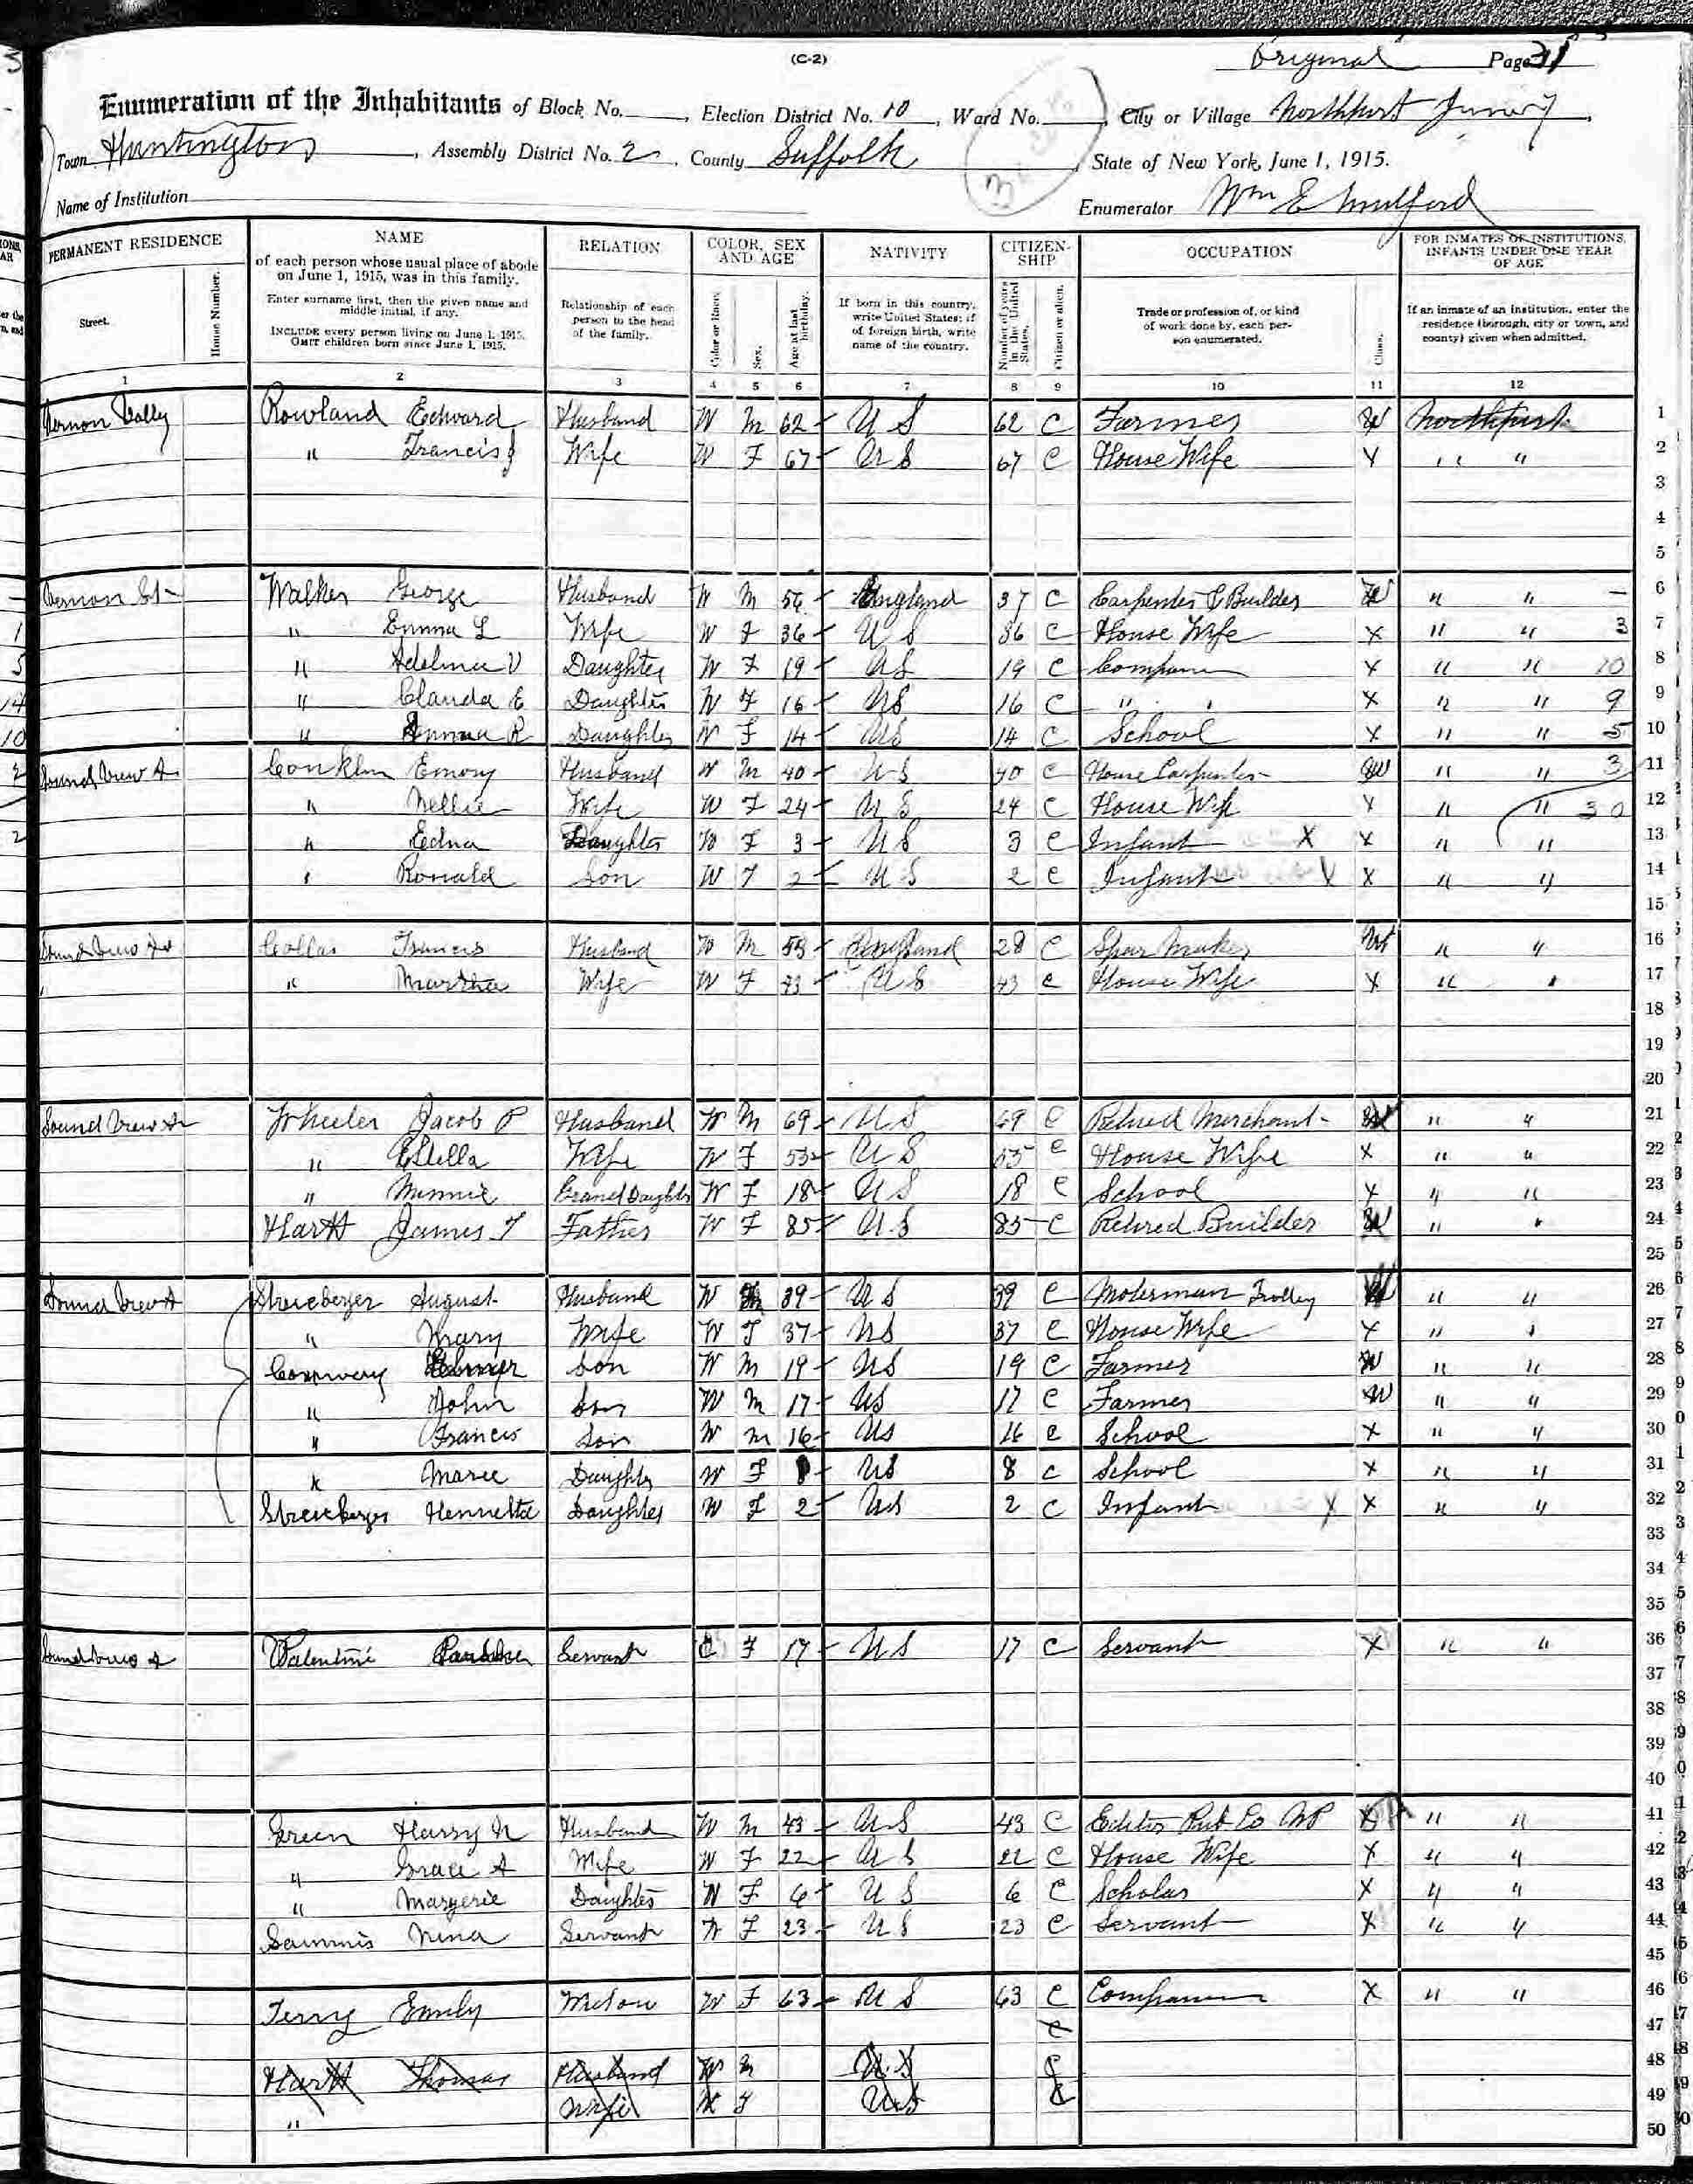 (C-2)
Original Page 31
Enumeration of the Inhabitants of Block No. , Election District No. 10 , Ward No. , City or Village Northport
Town Huntington , Assembly District No. 2 , County Suffolk , State of New York, June 1, 1915.
Name of Institution
Enumerator Wm E Mulford
PERMANENT RESIDENCE
Street.
House Number.
NAME
of each person whose usual place of abode on June 1, 1915, was in this family.
Enter surname first, then the given name and middle initial, if any.
INCLUDE every person living on June 1, 1915. OMIT children born since June 1, 1915.
RELATION
Relationship of each person to the head of the family.
COLOR, SEX AND AGE
Color or Race.
Sex.
Age at last birthday.
NATIVITY
If born in this country, write United States; if of foreign birth, write name of the country.
CITIZENSHIP
Number of years in the United States.
Citizen or alien.
OCCUPATION
Trade or profession of, or kind of work done by, each person enumerated.
Class.
FOR INMATES OF INSTITUTIONS, INFANTS UNDER ONE YEAR OF AGE
If an inmate of an institution, enter the residence (borough, city or town, and county) given when admitted.
1 2 3 4 5 6 7 8 9 10 11 12
Vernon Vally Rowland Edward Husband W M 62 U S 62 C Farmer W Northport 1
" Francis Wife W F 67 U S 67 C House Wife X " " 2
3
4
5
Vernon St Walker George Husband W M 56 England 37 C Carpenter & Builder W " " - 6
" Emma L Wife W F 36 U S 36 C House Wife X " " 3 7
" Adelina V Daughter W F 19 US 19 C Companion X " " 10 8
" Clauda E Daughter W F 16 US 16 C " " X " " 9 9
" Anna R Daughter W F 14 US 14 C School X " " 5 10
Sound View A Conklin Emory Husband W M 40 US 40 C House Carpenter W " " 3 11
" Nellie Wife W F 24 U S 24 C House Wife X " " 30 12
" Edna Daughter W F 3 U S 3 C Infant X X " " 13
" Ronald Son W F 2 U S 2 C Infant X X " " 14
15
Sound View Av Collas Francis Husband W M 53 England 28 C Spar Maker W " " 16
" Martha Wife W F 43 U S 43 C House Wife X " " 17
18
19
20
Sound View Av Wheeler Jacob P Husband W M 69 U S 69 C Retired Merchant W " " 21
" Estella Wife W F 53 U S C House Wife X " " 22
" Minnie Grand Daughter W F 18 U S 18 C School X " " 23
Hartt James T Father W F 85 U.S 85 C Retired Builder W " " 24
25
Sound View A Streseberger August Husband W M 39 U S 39 C Moterman Trolley W " " 26
" Mary Wife W F 37 US 37 C House Wife X " " 27
Conwery Elmer Son W M 19 US 19 C Farmer W " " 28
" John Son W M 17 US 17 C Farmer W " " 29
" Francis Son W M 16 US 16 C School X " " 30
" Marie Daughter W F 8 US 8 C School X " " 31
Streseberger Henrietta Daughter W F 2 US 2 C Infant X X " " 32
33
34
35
Sound View A Valentine Servant C F 17 U S 17 C Servant X " " 36
37
38
39
40
Green Harry N Husband W M 43 U S 43 C Editor Pub Co NP X " " 41
" Grace A Wife W F 22 U S 22 C House Wife X " " 42
" Margerie Daughter W F 6 U S 6 C Scholar X " " 43
Sammis Nina Servant W F 23 U S 23 C Servant X " " 44
45
Terry Emily Widow W F 63 U S 63 C Companion X " " 46
C 47
Hartt Thomas Husband W M U.S C 48
" Wife W F US C 49
50